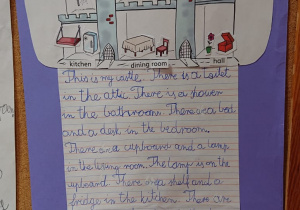 kitchen dining room hall
This is my castle. There is a toilet
in the attic. There is a shower
in the bathroom. There is a bed
and a desk in the bedroom.
There is a cupboard and a lamp
in the living room. The lamp is on the
cupboard. There is a shelf and a
fridge in the kitchen. There are